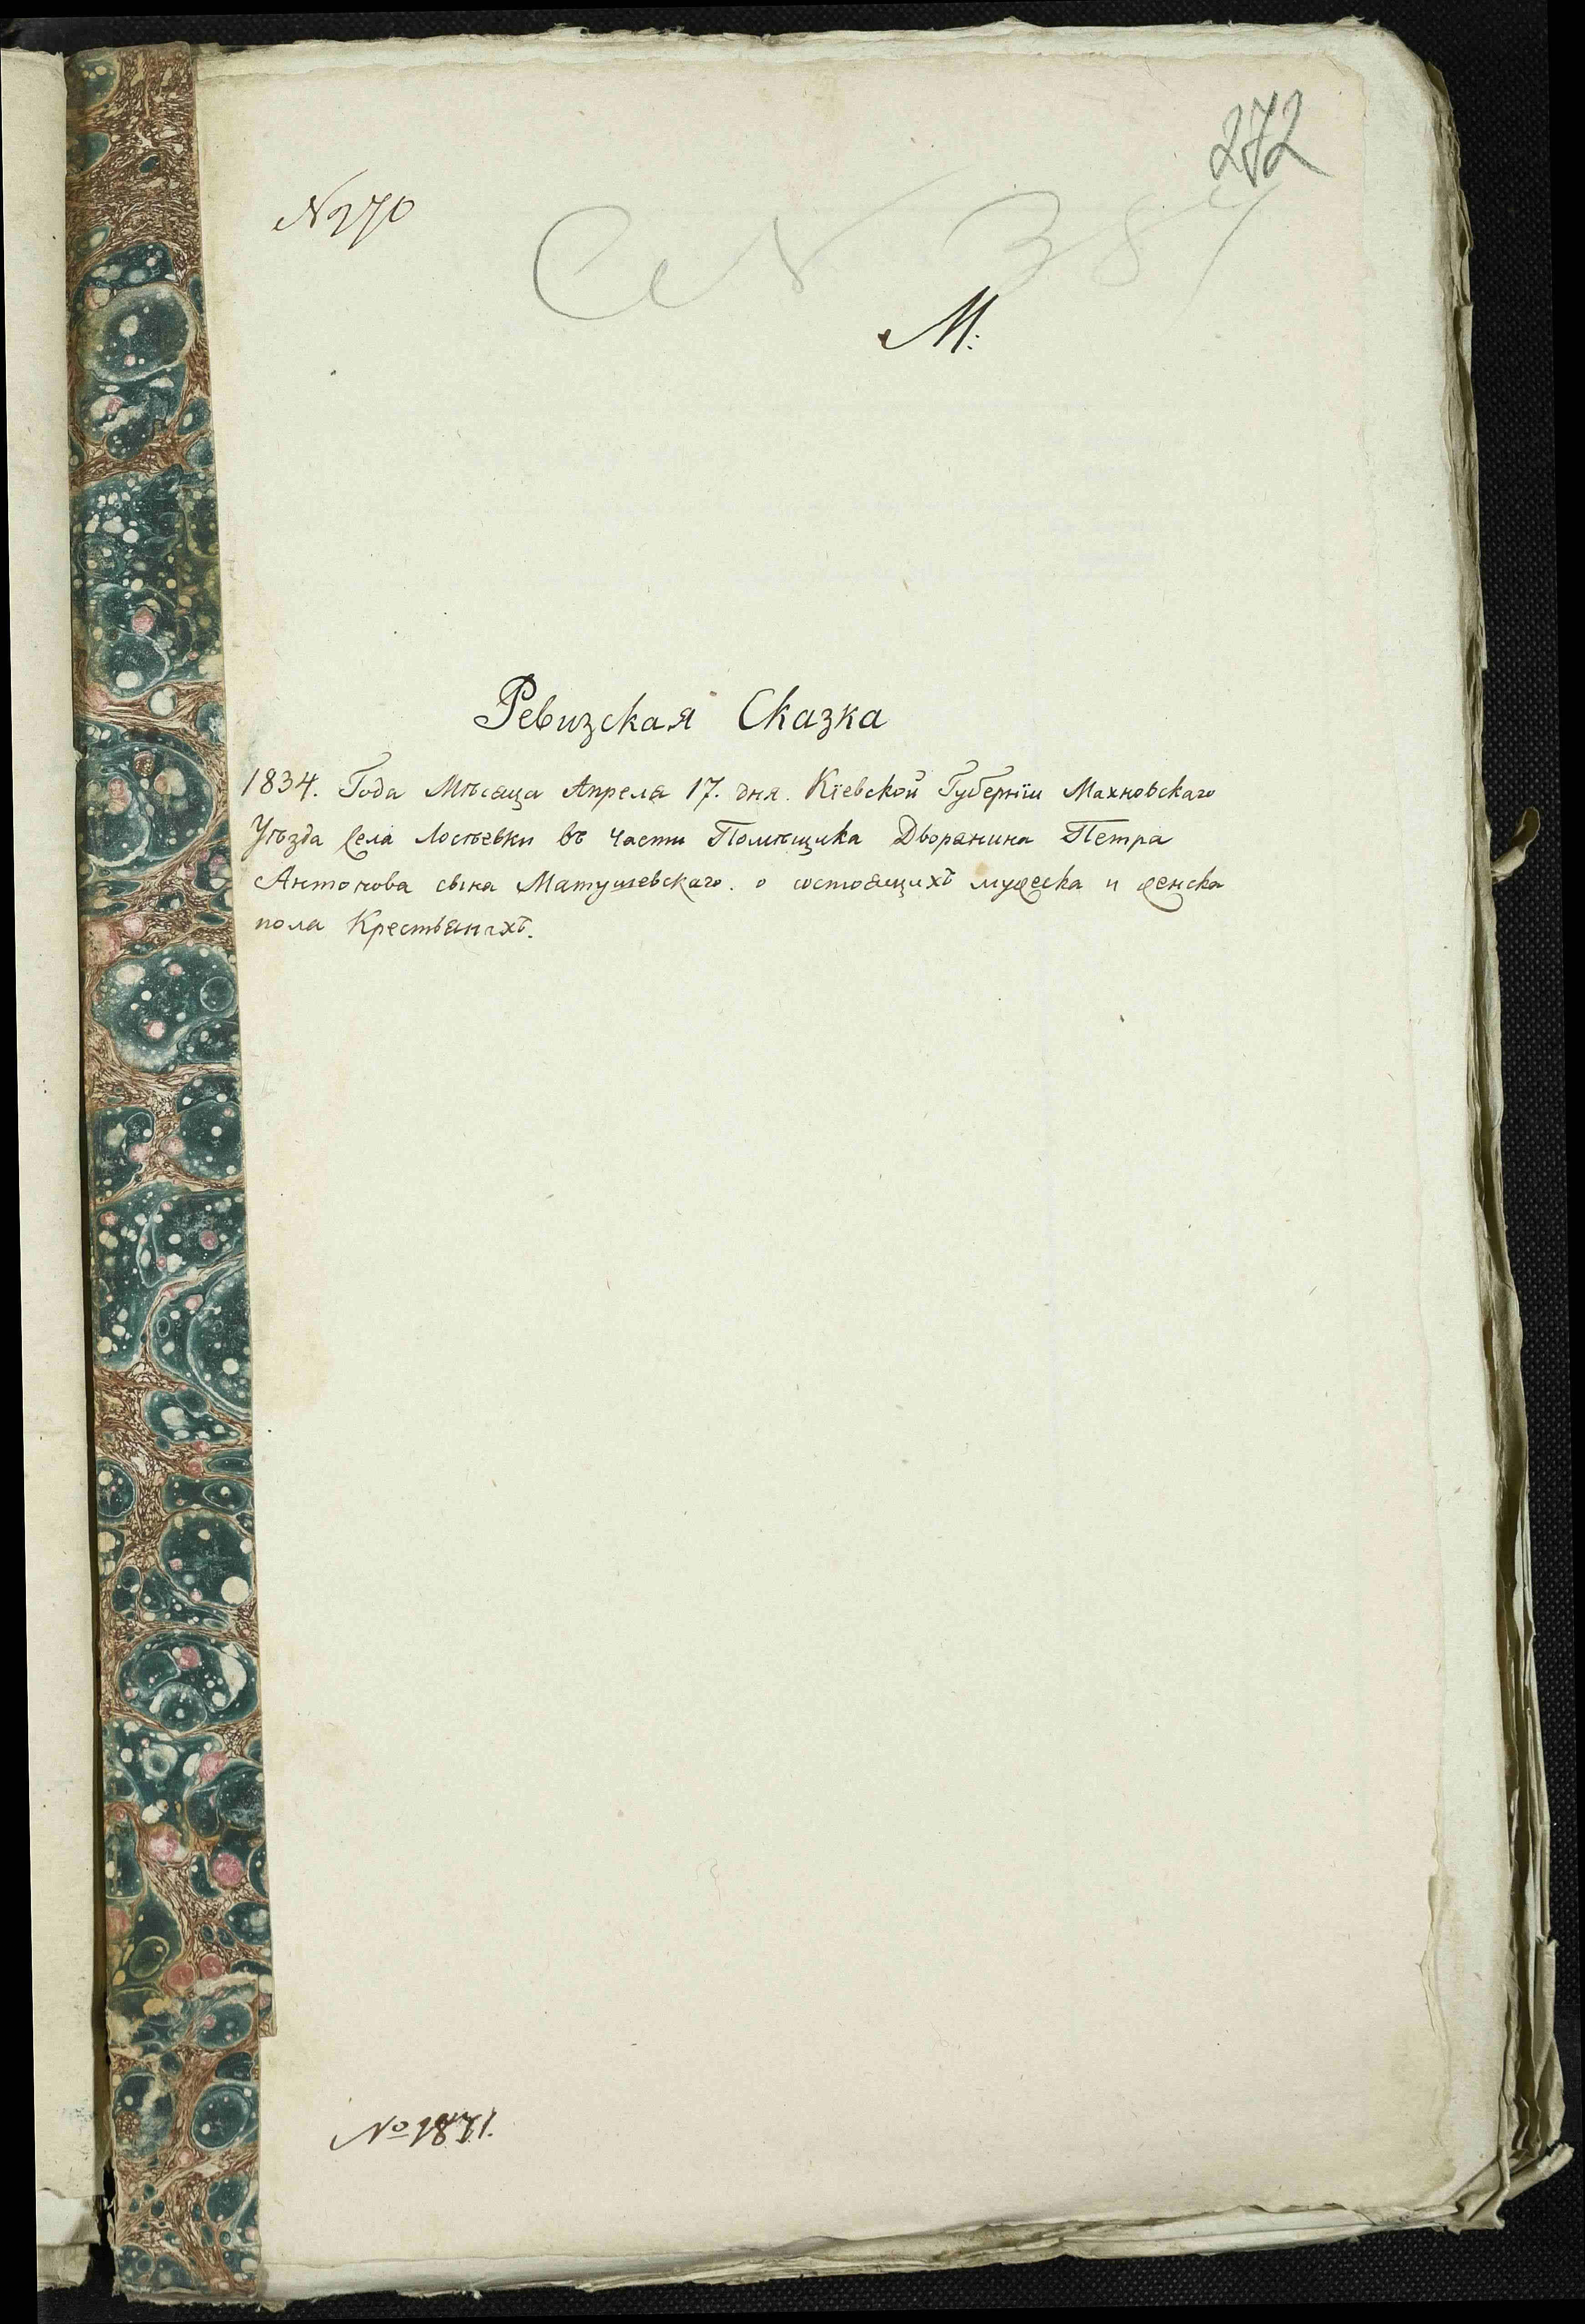 272
N270
N 387
М:
Ревизская Сказка
1834. Года Мѣсяца Апреля 17. дня. Кіевской Губерніи Махновскаго
Уѣзда Села Лостьевки въ Части Помѣщика Дворянина Петра
Антонова сына Матушевскаго. о состоящихъ мужеска и женска
пола Крестьянахъ.
№ 1871.